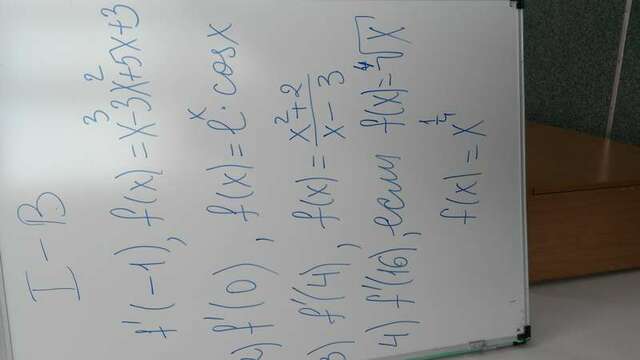 I - В
f'(-1), f(x) = x³-3x²+5x+3
2) f'(0), f(x) = e^x · cosx
3) f'(4), f(x) = (x²+2)/(x-3)
4) f'(16), если f(x) = ⁴√x
f(x) = x^(1/4)